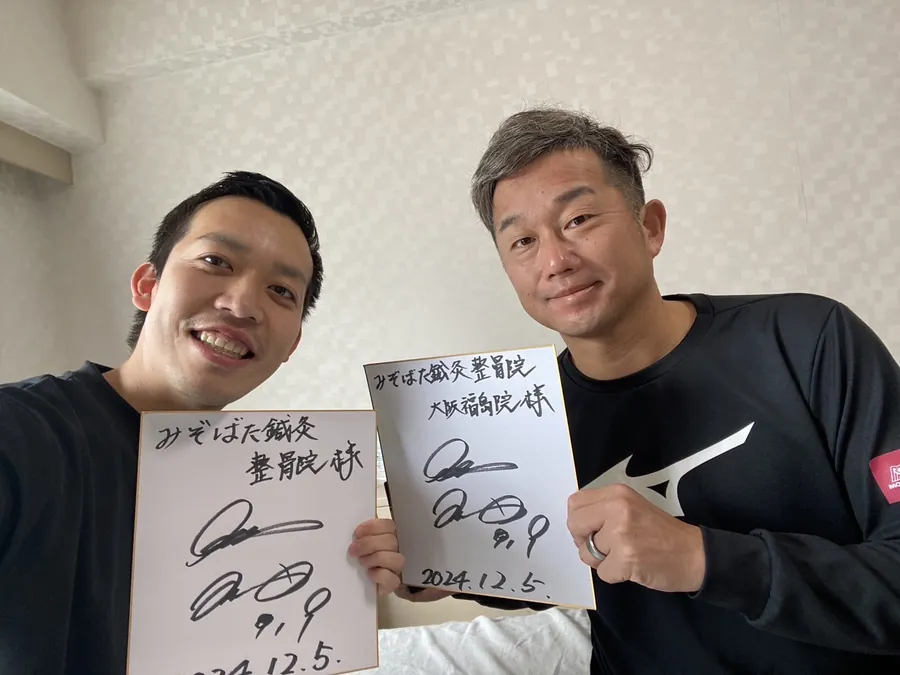 みぞばた鍼灸
整骨院 様
24.12.5.
みぞばた鍼灸整骨院
大阪福島院 様
2024.12.5.